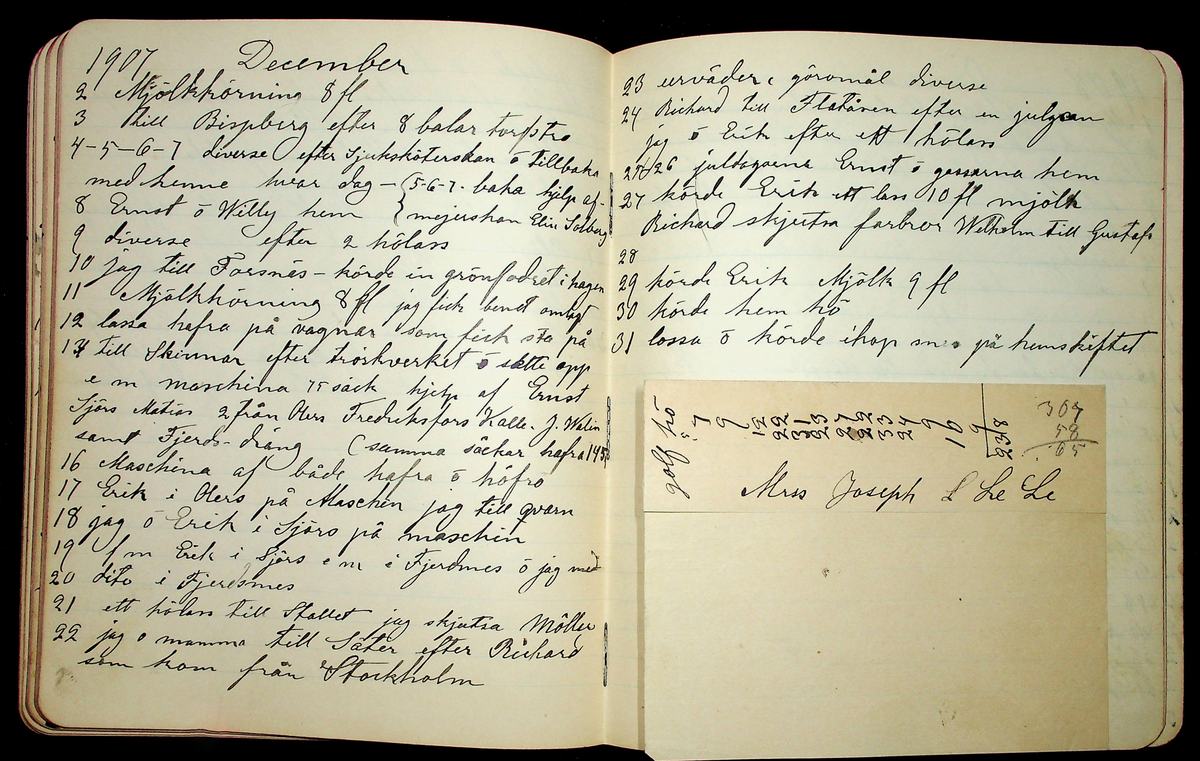 1907 December
2 Mjölkkörning 8 fl
3 till Bispberg efter 8 balar torfströ
4-5-6-7 diverse efter Sjuksköterskan ö tillbaka
med henne hvar dag – 5-6-7. baka hjelp af
8 Ernst ö Willy hem mejerskan Elin Solberg
9 diverse efter 2 hölass
10 jag till Forsnäs – körde in grönfodret i hagen
11 Mjölkkörning 8 fl jag fick benet omlagt
12 lassa hafra på vagnar som fick stå på
14 till Skinnar efter tröskverket ö satte opp
e m maschina 75 säck hjelp af Ernst
Sjörs Matias 2 från Olers Fredriksfors Kalle. J. Walin
samt Fjerds-dräng (samma säckar hafra 145
16 Maschina af både hafra ö höfrö
17 Erik i Olers på Maschin jag till qvarn
18 jag ö Erik i Sjörs på maschin
19 f m Erik i Sjörs e m i Fjerdmes ö jag med
20 dito i Fjerdsmes
21 ett hölass till Stallet jag skjutsa Möller
22 jag o mamma till Säter efter Richard
som kom från Stockholm
23 urväder göromål diverse
24 Richard till Flatåsen efter en julgran
jag ö Erik efter ett hölass
25 26 juldagarna Ernst ö gossarna hem
27 körde Erik ett lass 10 fl mjölk
Richard skjutsa farbror Wilhelm till Gustafs
28
29 körde Erik Mjölk 9 fl
30 körde hem hö
31 lossa ö körde ihop på hemskiftet
golf hö
7
9
12
22
31
23
27
22
33
24
9
10
9
238
307
58
65
Mrss Joseph L Le Le